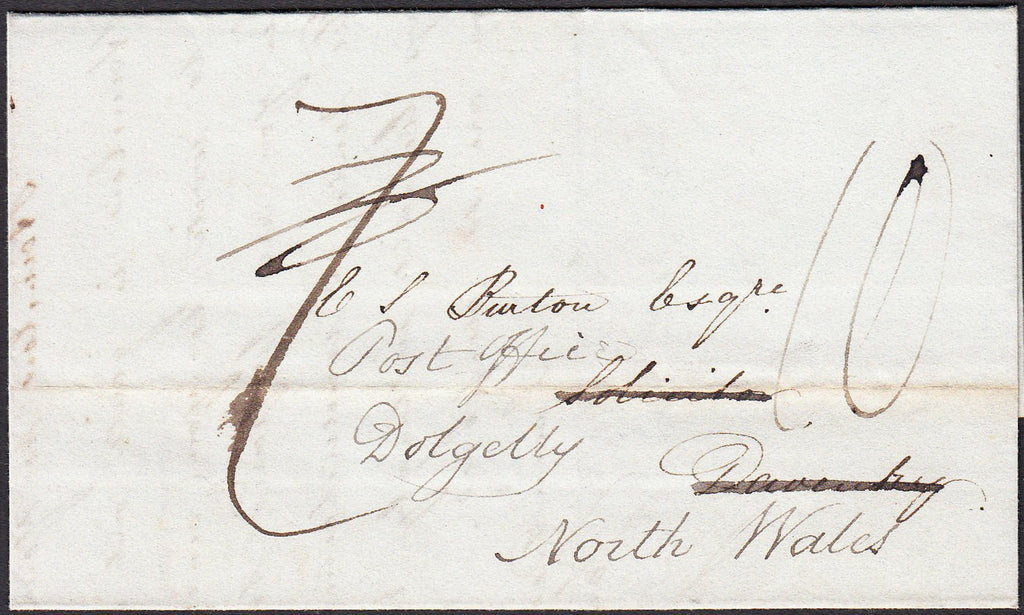 7
10
E S Burton Esqre
Post Office
Solicitor
Dolgelly
Daventry
North Wales